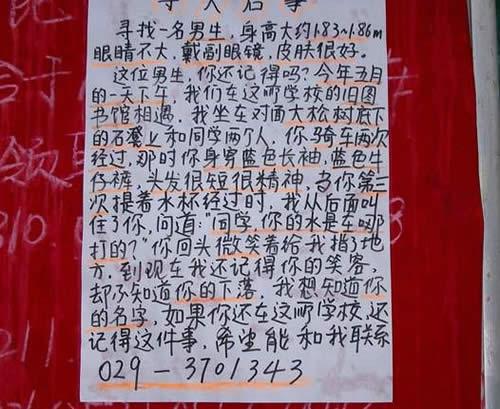 寻人启事
寻找一名男生，身高大约1.83~1.86m
眼睛不大，戴副眼镜，皮肤很好。
这位男生，你还记得吗？今年五月
的一天下午，我们在这所学校的旧图
书馆相遇，我坐在对面大松树底下
的石凳上和同学两个人，你骑车两次
经过，那时你身穿蓝色长袖，蓝色牛
仔裤，头发很短很精神，当你第三
次提着水杯经过时，我从后面叫
住了你，问道：“同学，你的水是在哪
打的？”你回头微笑着给我指了地
方，到现在我还记得你的笑容，
却不知道你的下落，我想知道你
的名字，如果你还在这所学校，还
记得这件事，希望能和我联系
029-3701343